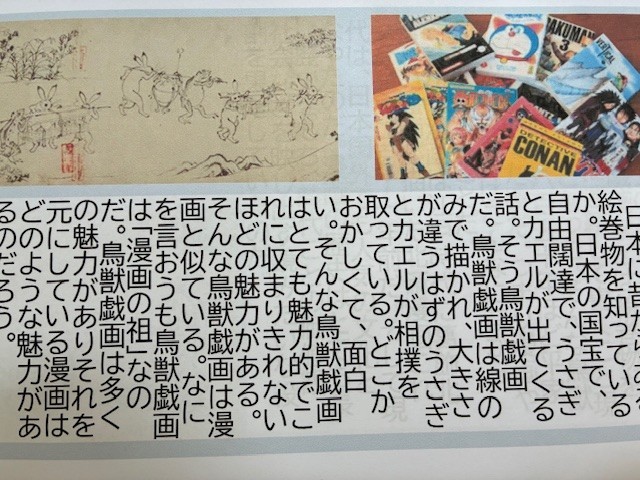 AKUMAN
3
VERTICAL
DETECTIVE
CONAN
日本に昔から
絵巻物を知っている
か。日本の国宝で、
自由闊達で、うさぎ
とカエルが出てくる
話。そう鳥獣戯画
だ。鳥獣戯画は線の
みで描かれ、大きさ
が違うはずのうさぎ
とカエルが相撲を
取っている。どこか
おかしくて、面白
い。そんな鳥獣戯画
はとても魅力的でこ
れに収まりきれない
ほどの魅力がある。
そんな鳥獣戯画は漫
画と似ている。なに
を言おうも鳥獣戯画
は「漫画の祖」なの
だ。鳥獣戯画は多く
の魅力がありそれを
元にしている漫画は
どのような魅力があ
るのだろう。